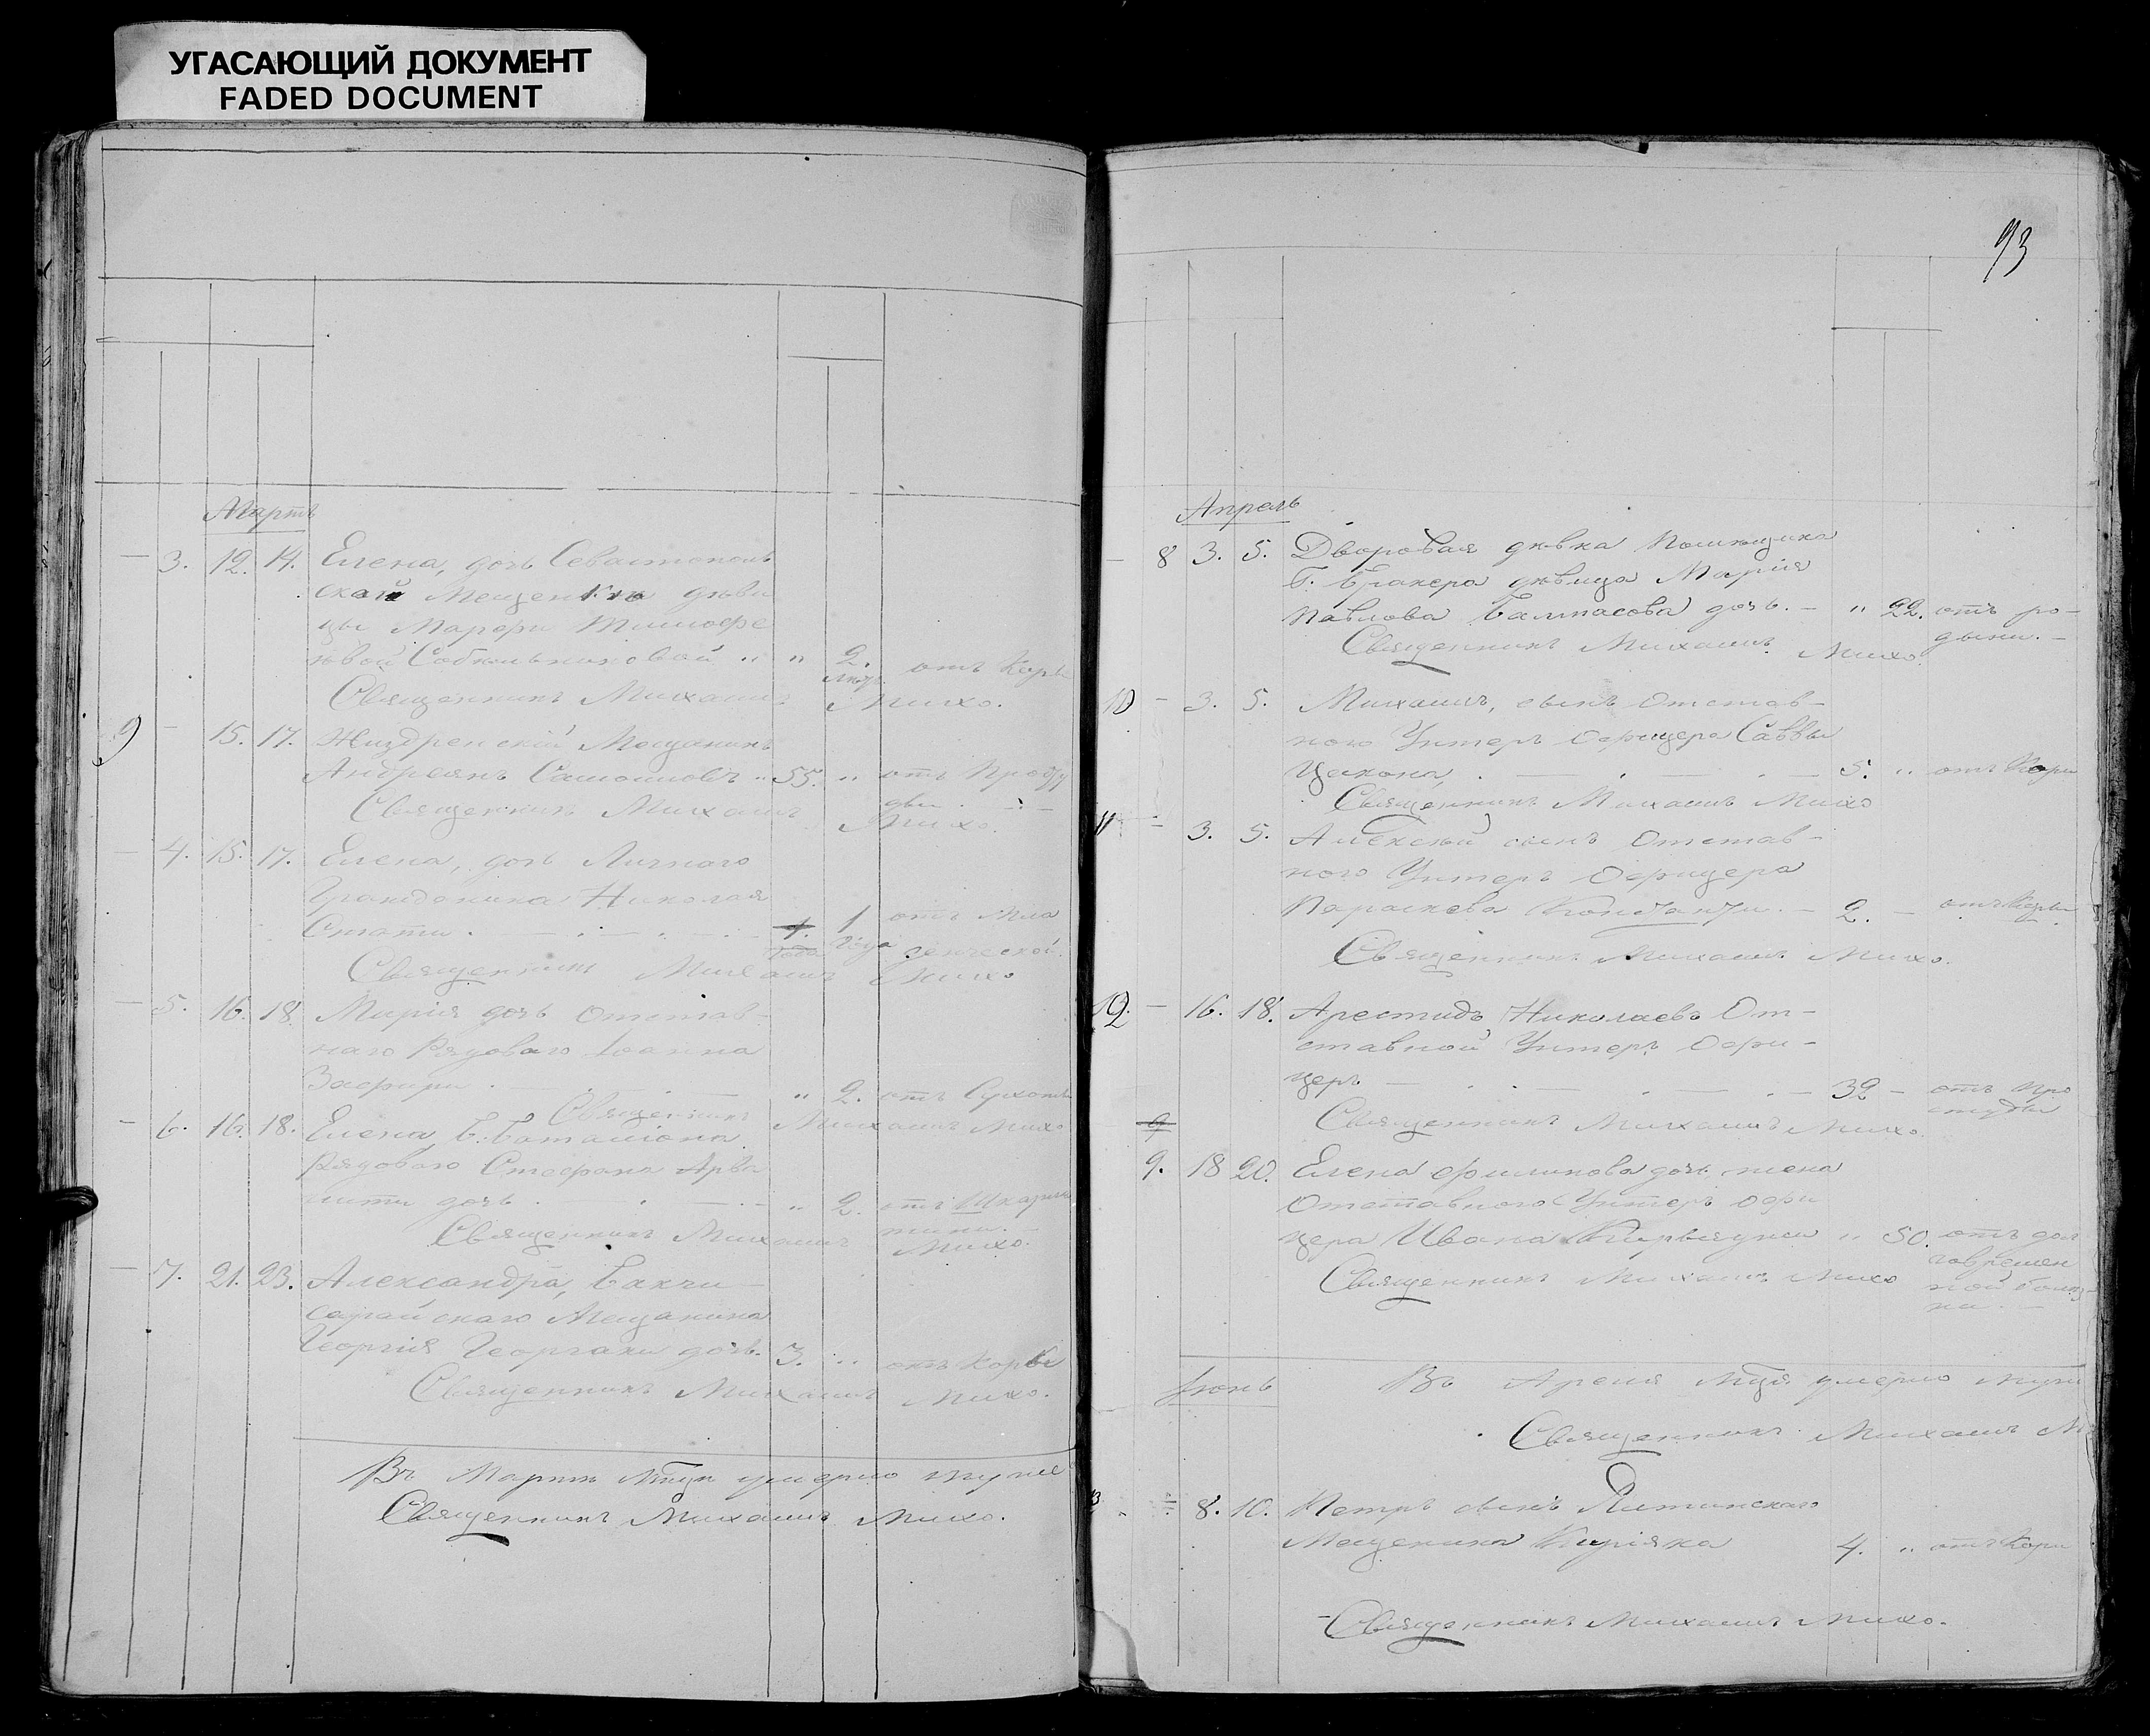 УГАСАЮЩИЙ ДОКУМЕНТ
FADED DOCUMENT
Мартъ
— 3. 12. 14. Елена, дочь Севастополь
ской Мещенки дѣви
цы Марфы Тимофе
ѣвой „ „ 2. отъ Коры
Священникъ Михаилъ Михо.
9 — 15. 17. Жиздренскій Мещанинъ
Андреянъ Самойловъ „ 55. „ отъ Просту
ды. —
Священникъ Михаилъ Михо.
— 4. 15. 17. Елена, дочь Личнаго
Гражданина Николая
Стати. — 1 отъ Мла
года денческой.
Священникъ Михаилъ Михо
— 5. 16. 18. Марія дочь Отстав-
наго Рядоваго Іоанна
Зафири. — „ 2. отъ Сухоты
Священникъ Михаилъ Михо
— 6. 16. 18. Елена, Б. Баталіона
Рядоваго Стефана
дочь. — „ 2. отъ Шкарла
тины. —
Священникъ Михаилъ Михо.
— 7. 21. 23. Александра, Бахчи-
сарайскаго Мещанина
Георгія Георгаки дочь. 3. „ отъ Коры
Священникъ Михаилъ Михо.
Въ Мартѣ Мцѣ умерло муже
Священникъ Михаилъ Михо.
93
Апрель
— 8 3. 5. Дворовая дѣвка Помѣщика
дѣвица Марія
Павлова дочь. — „ 22. отъ ро-
дыни. —
Священникъ Михаилъ Михо.
10 — 3. 5. Михаилъ, сынъ Отстав-
ного Унтеръ Офицера Саввы
Цакона, . — 5. „ отъ Кори
Священникъ Михаилъ Михо
11 — 3. 5. Алексѣй сынъ Отстав-
ного Унтеръ Офицера
Параскева — 2. — отъ Коры
Священникъ Михаилъ Михо.
12. — 16. 18. Арестидъ Николаевъ От-
ставной Унтеръ Офи-
церъ — 32 — отъ про
студы
Священникъ Михаилъ Михо.
9
9. 18 20. Елена Филипова дочь, жена
Отставного Унтеръ Офи
цера Ивана „ 50. отъ дол
говремен
ной болѣз-
ни. —
Священникъ Михаилъ Михо
Іюнь
Въ Мцѣ умерло мужи
Священникъ Михаилъ М
8. 10. Петръ сынъ Ялтинскаго
Мещенина Киріяка 4. „ отъ Кори
Священникъ Михаилъ Михо.